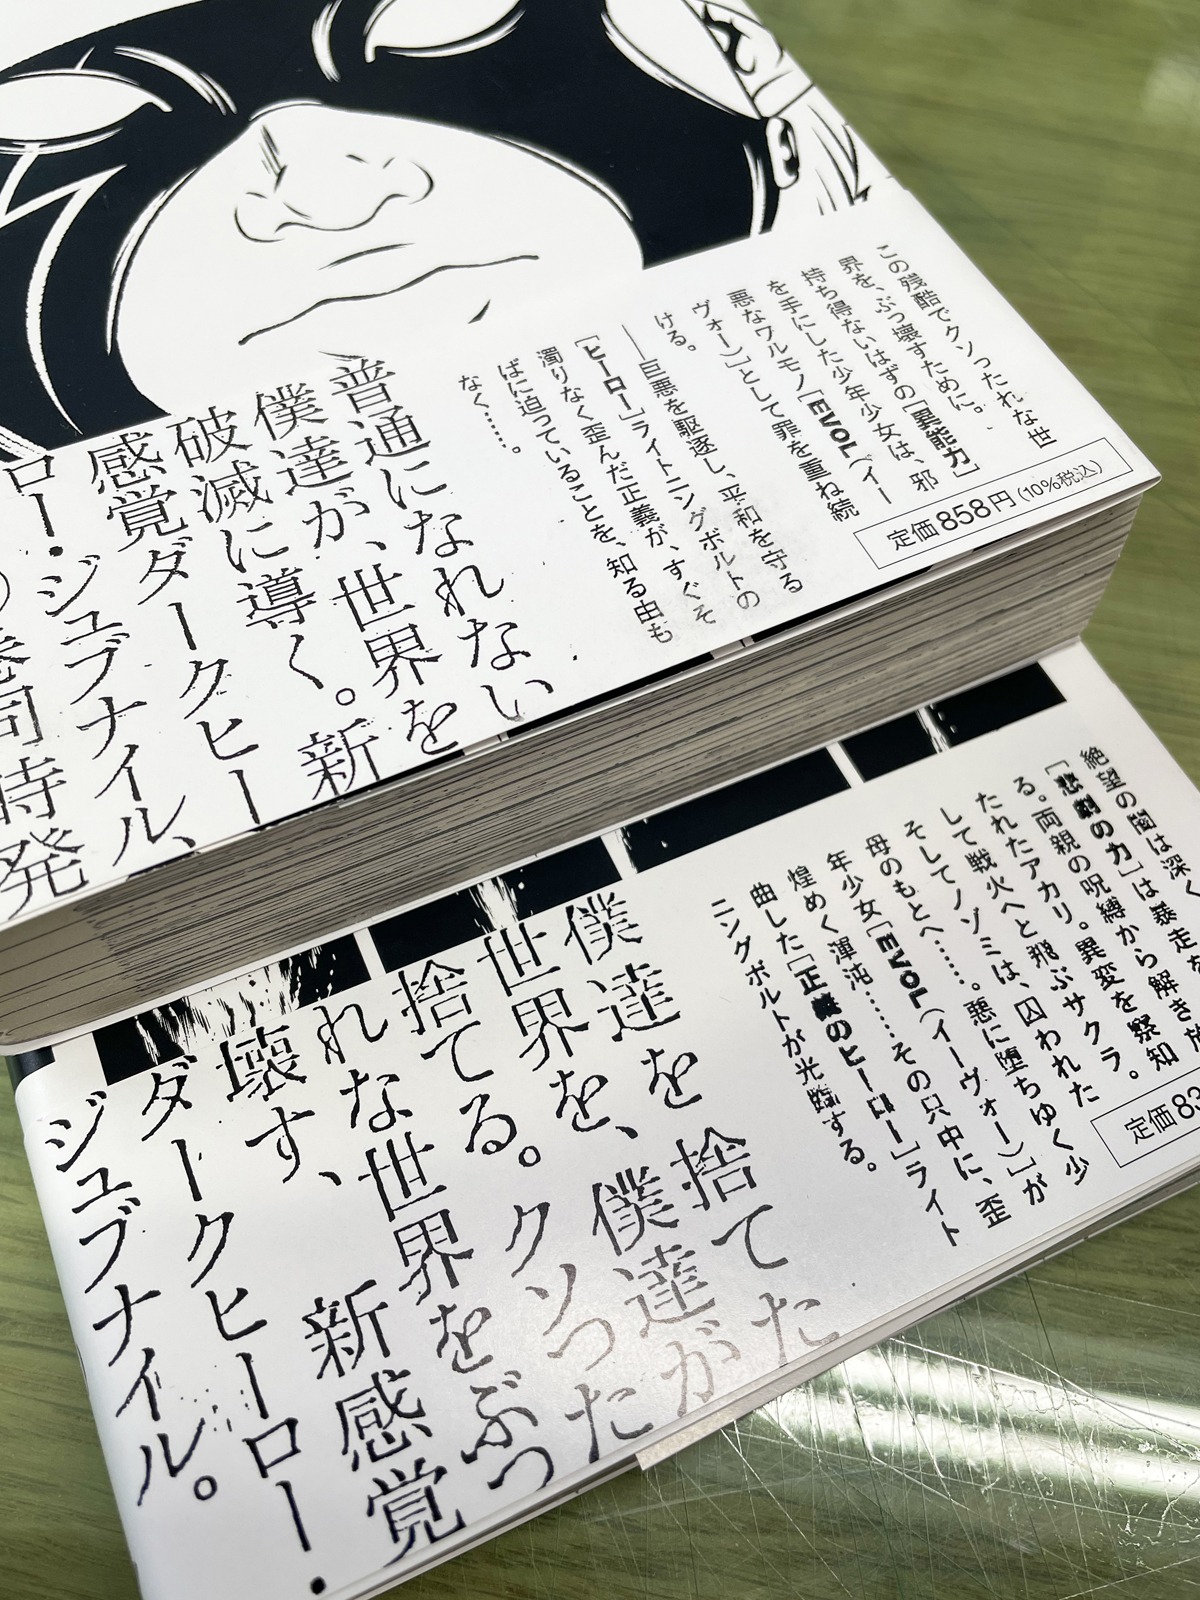 この残酷でクソったれな世
界を、ぶっ壊すために。
持ち得ないはずの[異能力]
を手にした少年少女は、邪
悪なワルモノ[EVOL(イー
ヴォー)]として罪を重ね続
ける。
――巨悪を駆逐し、平和を守る
[ヒーロー]ライトニングボルトの
濁りなく歪んだ正義が、すぐそ
ばに迫っていることを、知る由も
なく……。
定価858円(10%税込)
普通になれない
僕達が、世界を
破滅に導く。新
感覚ダークヒー
ロー・ジュブナイル、
巻同時発
絶望の闇は深く、
[悲劇の力]は暴走を
る。両親の呪縛から解き放
たれたアカリ。異変を察知
して戦火へと飛ぶサクラ。
そしてノゾミは、囚われた
母のもとへ……。悪に堕ちゆく少
年少女[EVOL(イーヴォー)]が
煌めく渾沌……その只中に、歪
曲した[正義のヒーロー]ライト
ニングボルトが光臨する。
定価83
僕達を捨てた
世界を、僕達が
捨てる。クソった
れな世界をぶっ
壊す、新感覚
ダークヒーロー・
ジュブナイル。